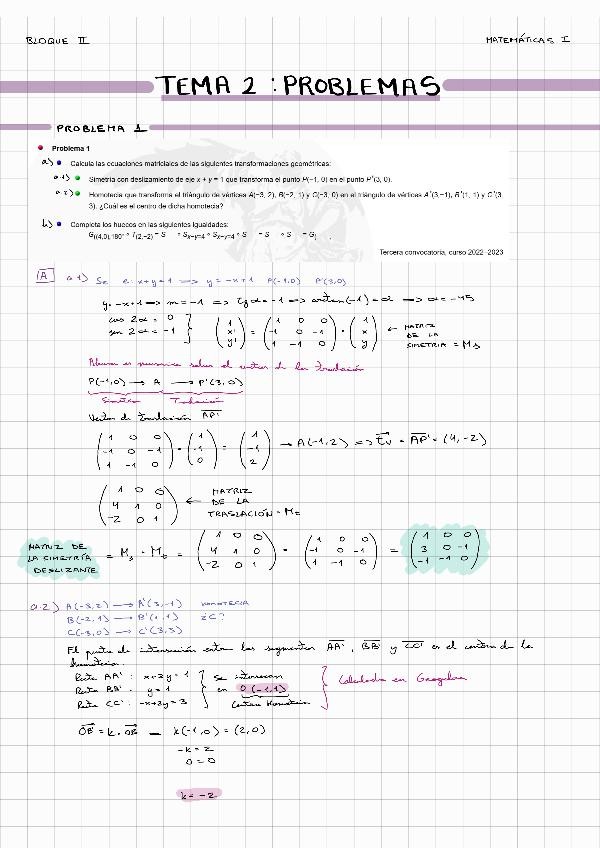 BLOQUE II
MATEMÁTICAS I
TEMA 2 : PROBLEMAS
PROBLEMA 1
Problema 1
a) Calcula las ecuaciones matriciales de las siguientes transformaciones geométricas:
a.1) Simetría con deslizamiento de eje x + y = 1 que transforma el punto P(−1, 0) en el punto P'(3, 0).
a.2) Homotecia que transforma el triángulo de vértices A(−3, 2), B(−2, 1) y C(−3, 0) en el triángulo de vértices A'(3,−1), B'(1, 1) y C'(3,
3). ¿Cuál es el centro de dicha homotecia?
b) Completa los huecos en las siguientes igualdades:
G(4,0),180° ∘ T(2,−2) = S ∘ Sx−y=4 ∘ Sx−y=4 ∘ S = S ∘ S = G ,
Tercera convocatoria, curso 2022–2023
A a.1) Se e: x+y=1 => y=-x+1 P(-1,0) P'(3,0)
y=-x+1 => m=-1 => tg α=-1 => arctan(-1)=α => α=-45
cos 2α = 0
sen 2α = -1
(1 x' y') = (1 0 0 / 0 -1 / 1 -1 0) · (1 x y) ← MATRIZ DE LA SIMETRIA = Ms
P(-1,0) → A → P'(3,0)
Simetría Traslación
Vector de traslación AP'
(1 0 0 / -1 0 -1 / 1 -1 0) · (1 -1 0) = (1 -1 2) → A(-1,2) => tv = AP' = (4,-2)
(1 0 0 / 4 1 0 / -2 0 1) ← MATRIZ DE LA TRASLACIÓN = Mt
MATRIZ DE LA SIMETRÍA DESLIZANTE = Ms · Mt = (1 0 0 / 4 1 0 / -2 0 1) · (1 0 0 / 1 0 -1 / 1 -1 0) = (1 0 0 / 3 0 -1 / -1 -1 0)
a.2) A(-3,2) → A'(3,-1) HOMOTECIA
B(-2,1) → B'(1,1) ¿C?
C(-3,0) → C'(3,3)
El punto de intersección entre los segmentos AA', BB' y CC' es el centro de la
homotecia.
Recta AA': x+2y=1
Recta BB': y=1
Recta CC': -x+2y=3
Se intersecan
en O(-1,1)
Centro Homotecia
Calculada en Geogebra
OB' = k·OB — k(-1,0) = (2,0)
-k = 2
0 = 0
k = -2